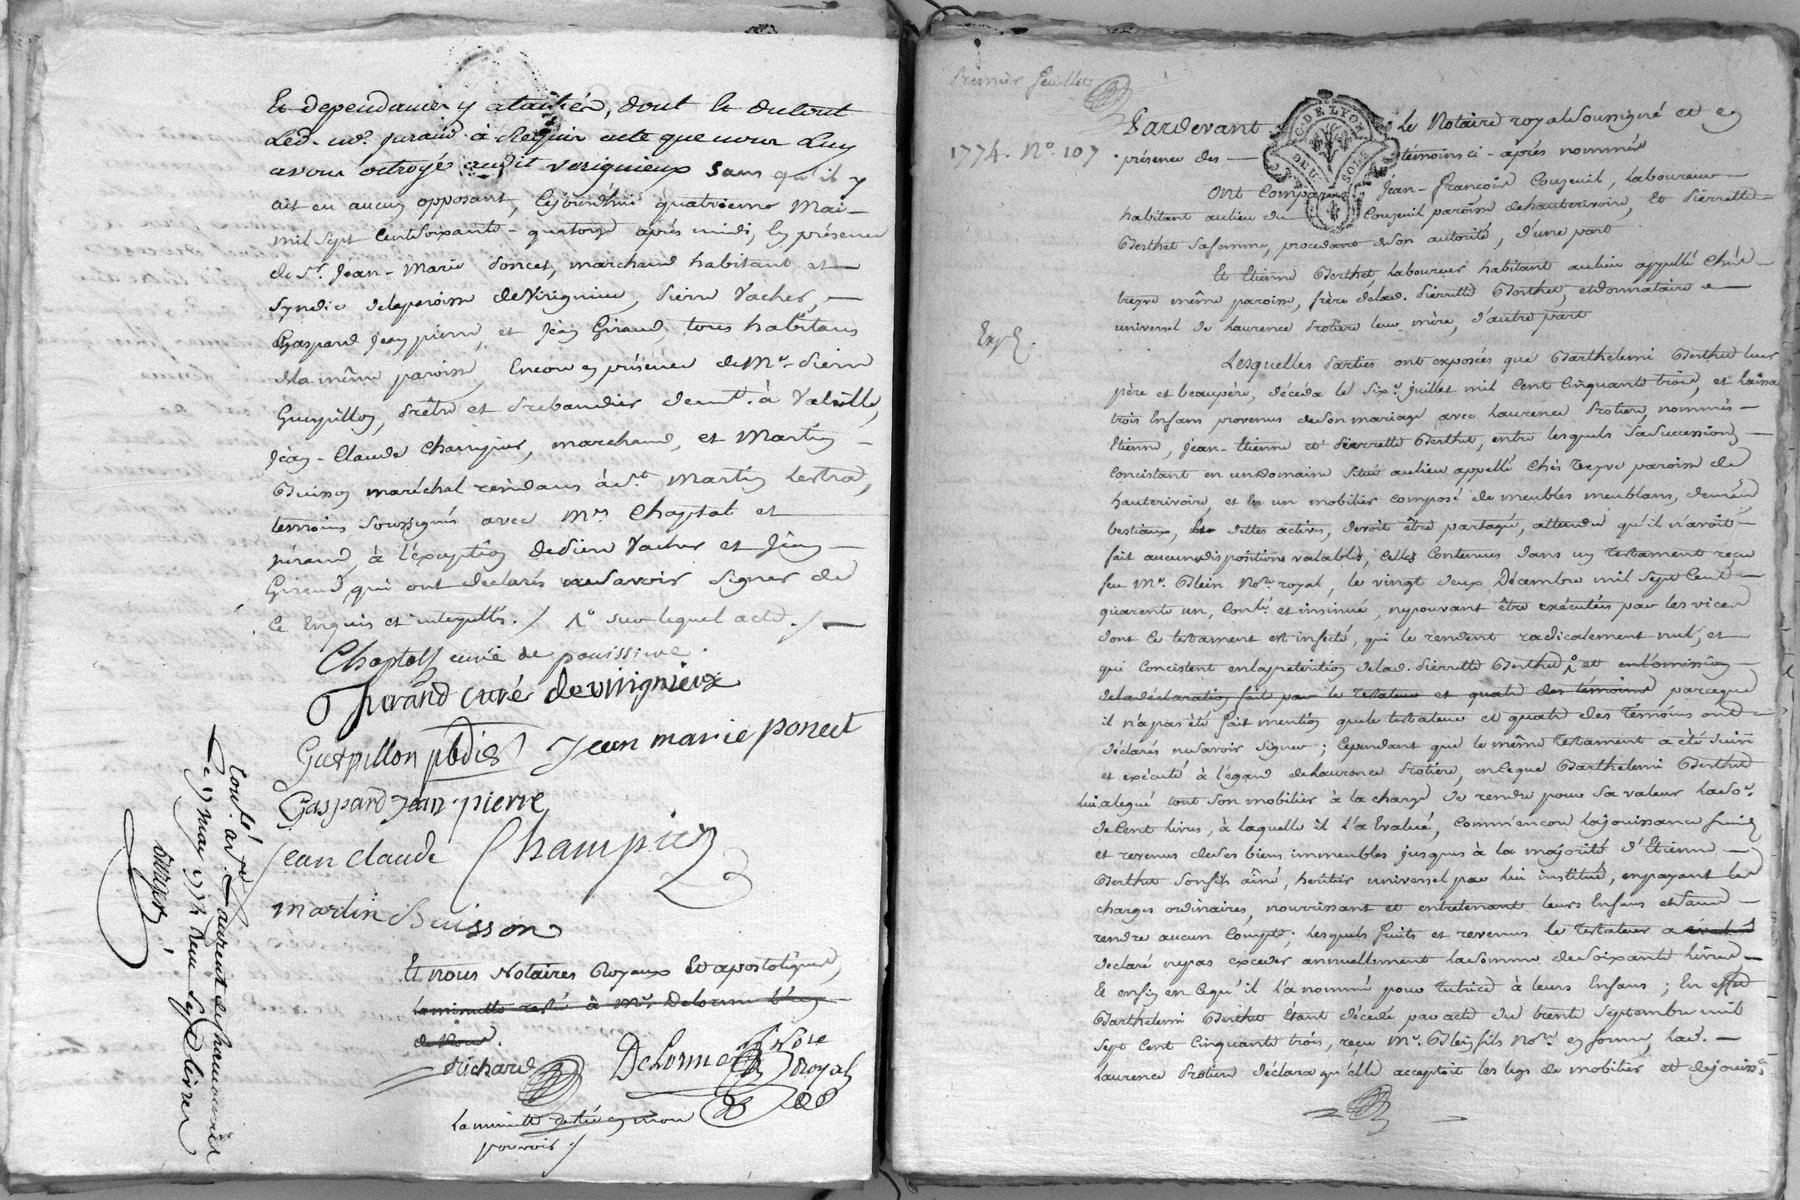 Et dependances y atachées, dont le du tout
Led. me. juraud à Requis acte que nous Luy
avons octroyés audit Verignieux sans qu'il y
ait eu aucun opposant, Cejourdhui quatrieme Mai
mil sept Cent soixante-quatorze après midi, En présence
de Sr. Jean-Marie Poncet, marchand habitant et
Syndic de la paroisse de Virignieu, Pierre Vacher,
Gaspard Jean pierre, et Jean Giraud, tous habitans
de la même paroisse, Encore en présence de Mre. Pierre
Guerpillon, Prêtre et Prebandier demt. à Valeille,
Jean-Claude Champier, marchand, et Martin
Buisson maréchal residans à St. Martin Lestra,
temoins soussignés avec Mrs Chaptal et
juraud, à l'éxception de Pierre Vacher et Jean
Giraud, qui ont déclarés ne Savoir Signer de
Ce Enquis et interpellés. / sur lequel acte. /
Chaptal curé de pouissieue.
Thurand curé de virignieux
Guerpillon pbdier Jean marie poncet
Gaspard Jean pierre
Jean Claude Champier
martin Buisson
Et nous Notaires Royaux Et apostoliques,
la minutte resté à Mr. Delorme l'un
de Nous.
Richard Delorme Nore Royal
la minutte restée en mon
pouvoir /
Contlé. à St. Laurent de chamousset
Le 7 may 1774 Reçu Sept livres
Premier feuillet
1774. No. 107
Exp.
GC. DE LYON
DEUX SOLS
Pardevant Le Notaire royal Soussigné et en
présence des témoins ci-après nommés
Ont Comparus Jean-François Couzeuil, laboureur
habitant au lieu du Couzeuil paroisse de hauterivoire, Et Pierrette
Berthet sa femme, procedant de Son autorité, d'une part
Et Etienne Berthet, laboureur habitant au lieu appellé Chés
treyve même paroisse, frère de lad. Pierrette Berthet, et donnataire
universel de Laurence Protiere leur mère, d'autre part
Lesquelles Parties ont exposées que Barthelemi Berthet leur
père et beaupère, décéda le Six juillet mil Sept Cent Cinquante trois, et laissa
trois Enfans provenus de Son mariage avec Laurence Protiere, nommés
Etienne, Jean-Etienne et Pierrette Berthet, entre lesquels sa Succession
Concistant en un Domaine Situé au lieu appellé Chés Treyve paroisse de
hauterivoire, et En un mobilier composé de meubles meublans, denrées
bestiaux, dettes actives, devoit être partagé, attendu qu'il n'avoit
fait aucunes dispositions valables, Celles Contenues dans un Testament reçu
feu Mr. Blein Nore. royal, le vingt deux Décembre mil Sept Cent
quarente un, Conlé. et insinué, ne pouvant être exécutées par les vices
dont ce testament est infecté, qui le rendent radicalement nul, et
qui Concistent en la prétérition de lad. Pierrette Berthet, et en l'omission
de la déclaration faite par le Testateur et quatre des témoins parceque
il n'a pas été fait mention que le testateur et quatre des Témoins ont
déclarés ne Savoir Signer ; Cependant que le même Testament a été Suivi
et exécuté à l'égard de Laurence Protière, en ce que Barthelemi Berthet
lui a legué tout Son mobilier à la charge de rendre pour Sa valeur la So.
de Cent livres, à laquelle il l'a Evalué, comm'encore la jouissance fruits
et revenus de Ses biens immeubles jusques à la majorité d'Etienne
Berthet Son fils aîné, heritier universel par lui institué, en payant les
charges ordinaires, nourrissant et entretenant leurs Enfans et Sans
rendre aucun Compte ; lesquels fruits et revenus le Testateur a évalués
déclaré ne pas exceder annuellement la Somme de Soixante livres
Et enfin en Ce qu'il l'a nommé pour tutrice à leurs Enfans ; En effet
Barthelemi Berthet Etant décédé par acte du trente Septembre mil
Sept Cent Cinquante trois, reçu Mr. Blein fils Nore. en forme, lad.
Laurence Protiere déclara qu'elle acceptoit les legs de mobilier et de jouiss.